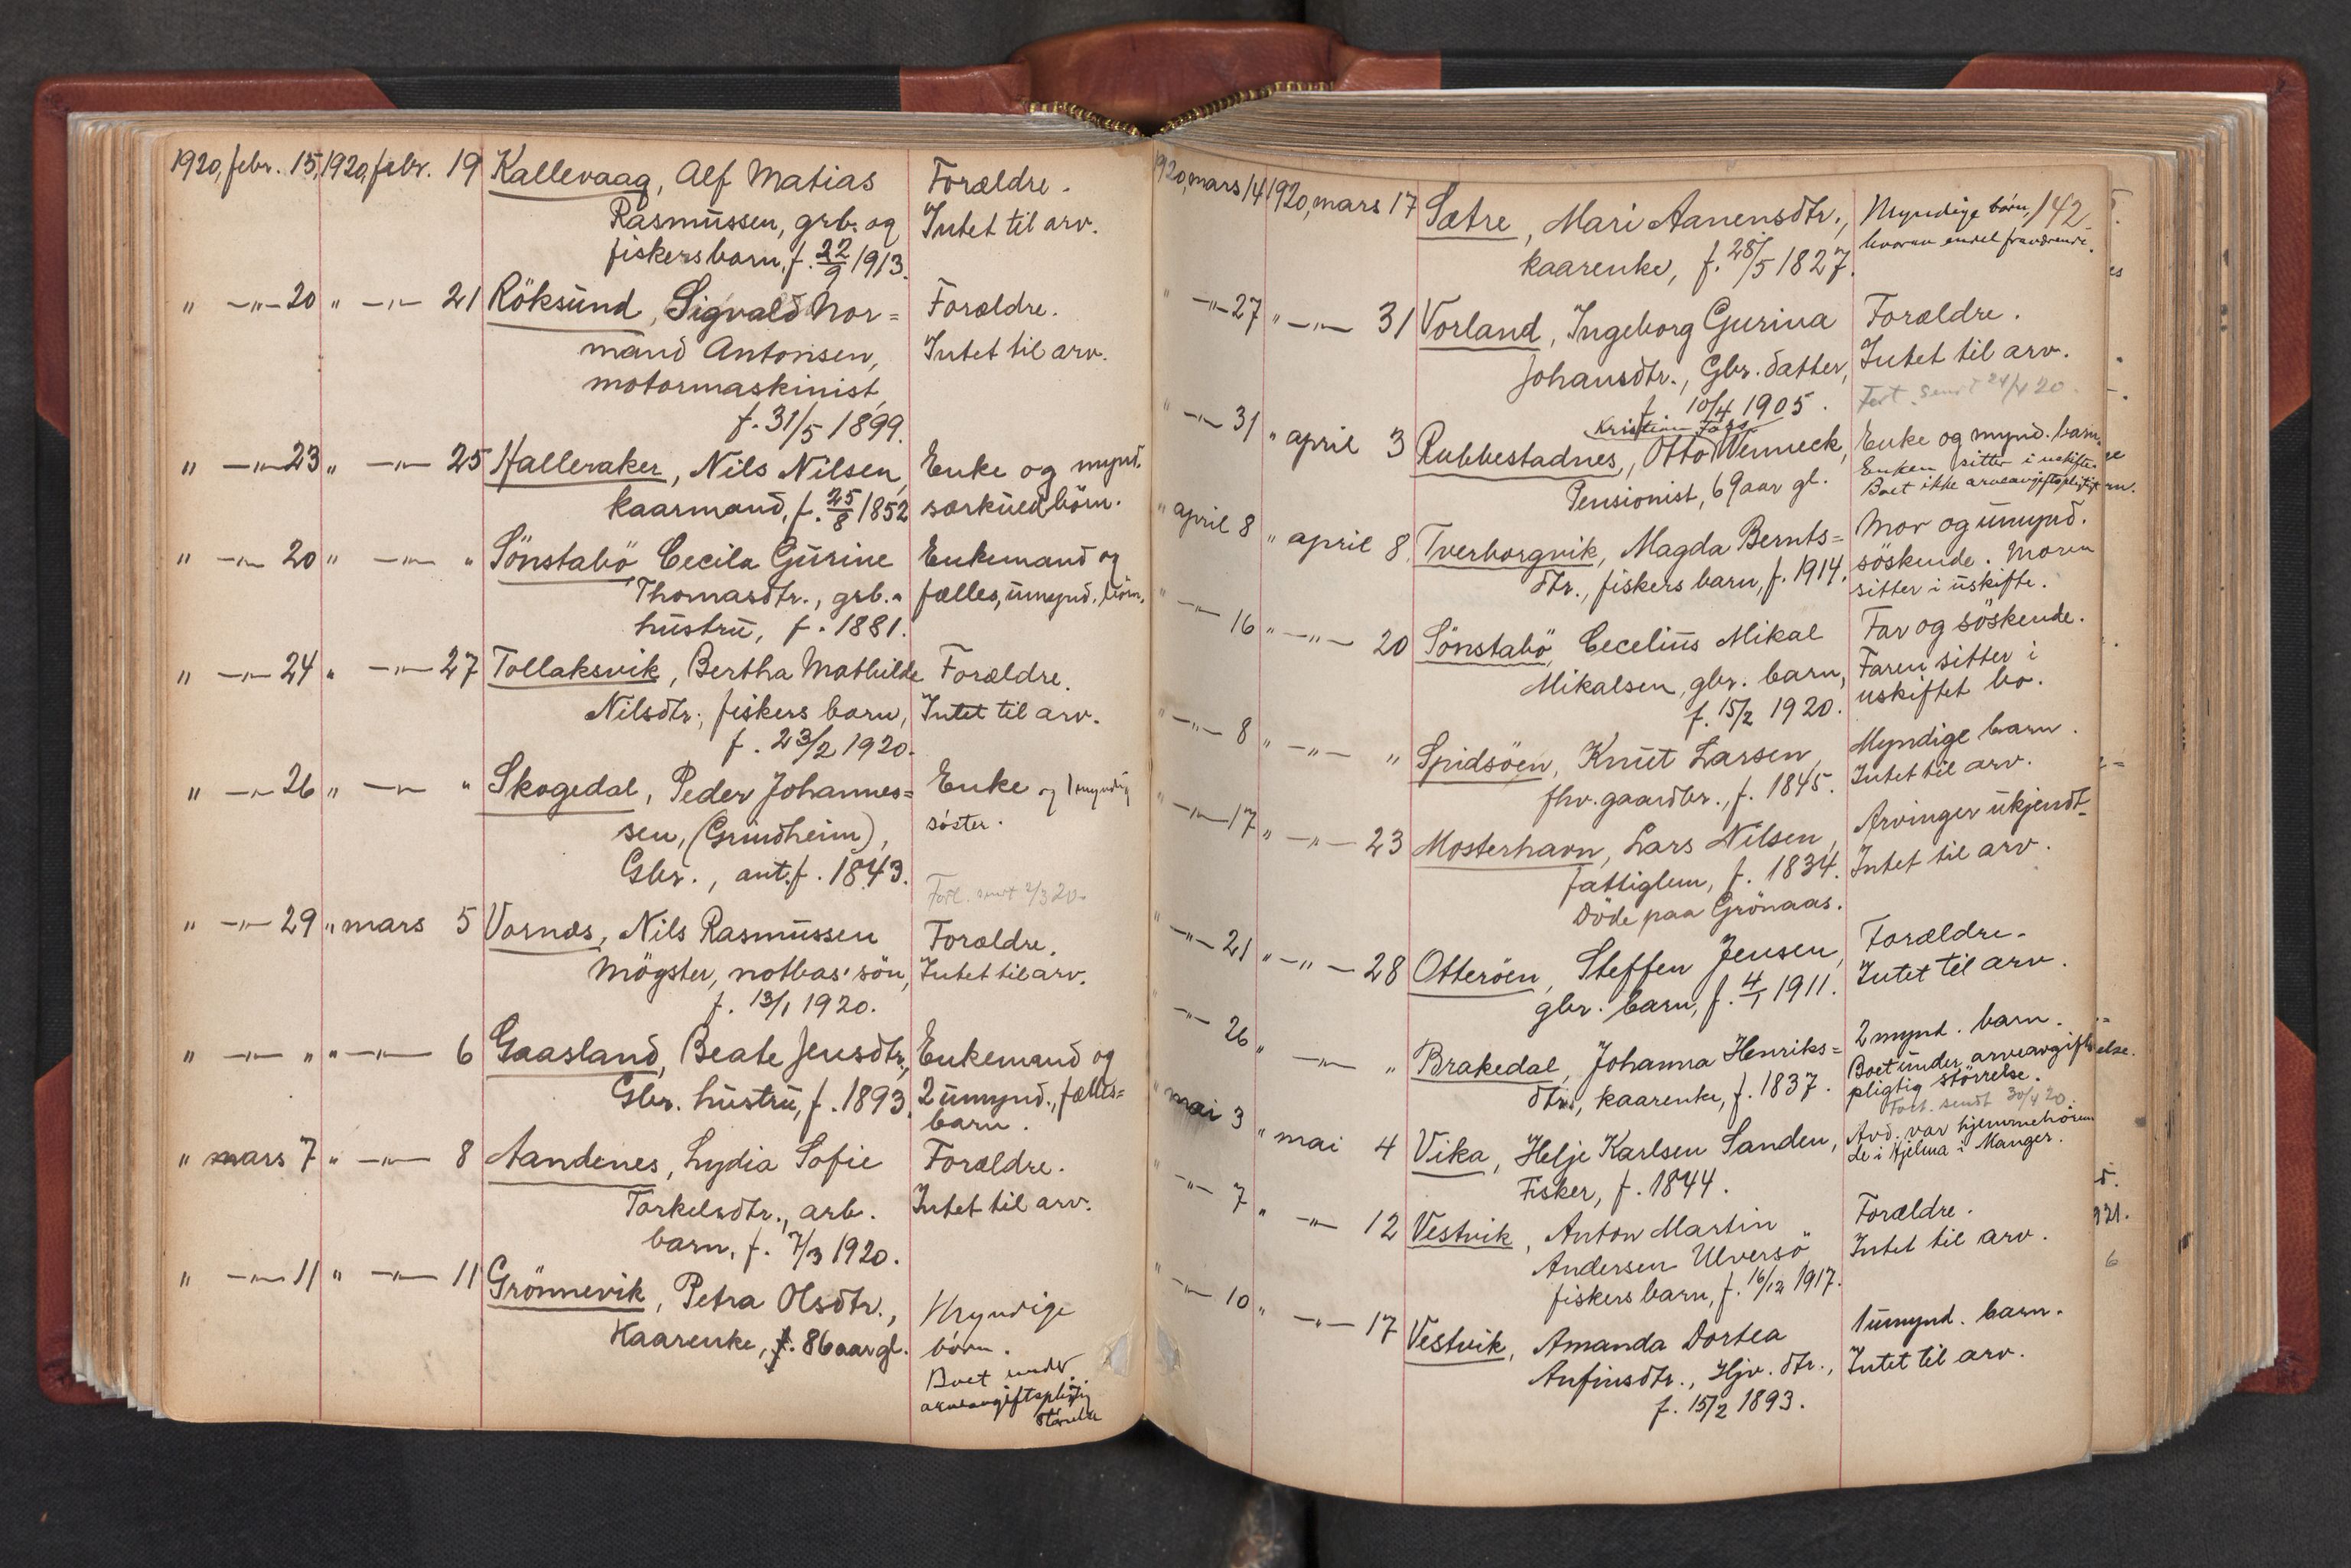 1920, febr. 15, 1920, febr. 19 Kallevaag, Alf Matias Forældre.
Rasmussen, grb. og Intet til arv.
fiskersbarn, f. 22/9 1913.
" —"— 20 " —"— 21 Röksund, Sigvald Nor= Forældre.
mand Antonsen, Intet til arv.
motormaskinist,
f. 31/5 1899.
" —"— 23 " —"— 25 Halleraker, Nils Nilsen, Enke og mynd.
kaarmand, f. 25/8 1852 særkuldbörn.
" —"— 20 " —"— " Sönstabö Cecila Gurine Enkemand og
Thomasdtr., grb. fælles, umynd. börn.
hustru, f. 1881.
" —"— 24 " —"— 27 Tollaksvik, Bertha Mathilde Forældre.
Nilsdtr., fiskers barn, Intet til arv.
f. 23/2 1920.
" —"— 26 " —"— " Skogedal, Peder Johannes= Enke og 1 myndig
sen, (Grindheim), söster.
Gbr., ant. f. 1843.
Fort. sendt 2/3 20.
" —"— 29 " mars 5 Vornæs, Nils Rasmussen Forældre.
Mögster, notbas' sön, Intet til arv.
f. 13/1 1920.
" —"— " " —"— 6 Gaasland, Beate Jensdtr., Enkemand og
Gbr. hustru, f. 1893. 2 umynd., fælles=
barn.
" mars 7 " —"— 8 Aandenes, Lydia Sofie Forældre.
Torkelsdtr., arb. Intet til arv.
barn, f. 7/3 1920.
" —"— 11 " —"— 11 Grönnevik, Petra Olsdtr., Myndige
Kaarenke, f. 86 aar gl. börn.
Boet under
arveavgiftspligtig
störrelse
1920, mars 14 1920, mars 17 Sætre, Mari Aanensdtr., Myndige börn, 142.
kaarenke, f. 28/5 1827. hvorav endel fraværende.
" —"— 27 " —"— 31 Vorland, Ingeborg Gurina Forældre.
Johansdtr., Gbr. datter, Intet til arv.
f. 10/4 1905. Fort. sendt 24/4 20.
Kristian Foss
" —"— 31 " april 3 Rubbestadnes, Otto Wenneck, Enke og mynd. barn.
Pensionist, 69 aar gl. Enken sitter i uskifte.
Boet ikke arveavgiftspligtig
" april 8 " april 8 Tverborgvik, Magda Bernts= Mor og umynd.
dtr., fiskers barn, f. 1914. söskende. Moren
sitter i uskifte.
" —"— 16 " —"— 20 Sönstabö, Cecelius Mikal Far og söskende.
Mikalsen, gbr. barn, Faren sitter i
f. 15/2 1920. uskiftet bo.
" —"— 8 " —"— " Spidsöen, Knut Larsen, Myndige barn.
fhv. gaardbr., f. 1845. Intet til arv.
" —"— 17 " —"— 23 Mosterhavn, Lars Nilsen, Arvinger ukjendt
fattiglem, f. 1834. Intet til arv.
Döde paa Grönaas.
" —"— 21 " —"— 28 Otteröen, Steffen Jensen, Forældre.
gbr. barn, f. 4/1 1911. Intet til arv.
" —"— 26 " —"— " Brakedal, Johanna Henriks= 2 mynd. barn.
dtr., kaarenke, f. 1837. Boet under arveavgifts
pligtig störrelse.
Fort. sendt 30/4 20.
" mai 3 " mai 4 Vika, Helje Karlsen Sanden, Avd. var hjemmehören
Fisker, f. 1844. de i Hjelma i Manger.
" —"— 7 " —"— 12 Vestvik, Anton Martin Forældre.
Andersen Ulversö, Intet til arv.
fiskers barn, f. 16/12 1917.
" —"— 10 " —"— 17 Vestvik, Amanda Dortea 1 umynd. barn.
Anfinsdtr., Hjv. dtr., Intet til arv.
f. 15/2 1893.